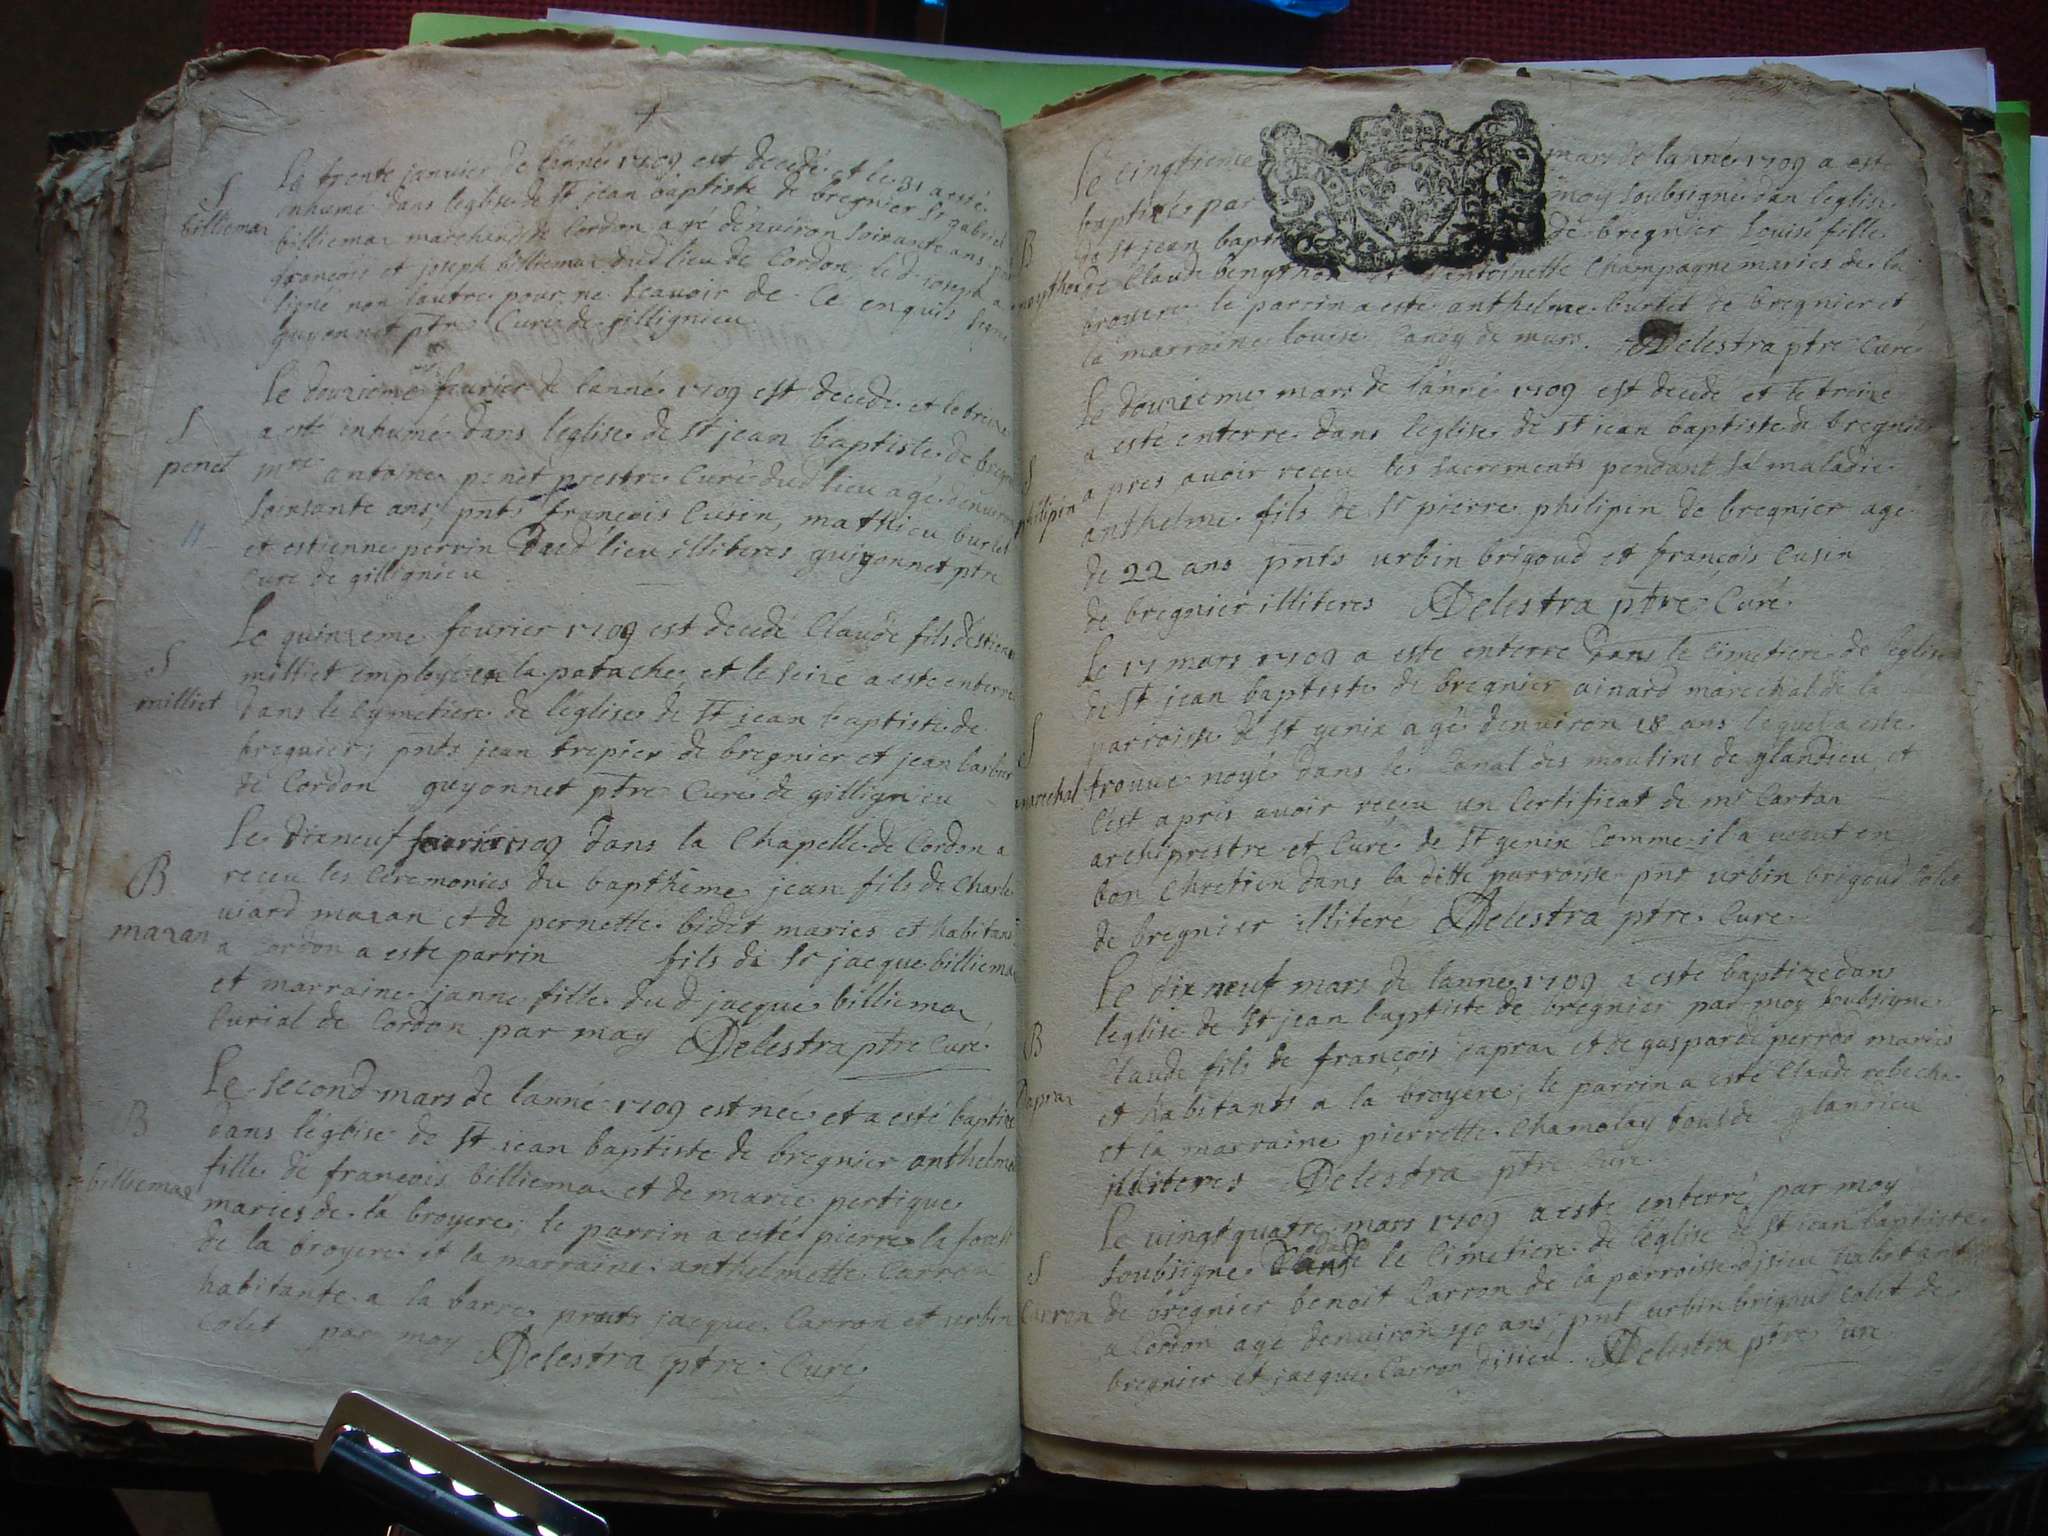 Le trente janvier de lanné 1709 est decedé et le 31 a esté
S
inhumé dans leglise de St jean baptiste de bregnier Sr gabriel
billiemaz
billiemaz marchand de Cordon agé denuiron soixante ans
françois et joseph billiemaz dud lieu de Cordon, led joseph a
signé non lautre pour ne scauoir de ce enquis
guyonnet ptre Curé de gillignieu
Le douzieme feurier de lanné 1709 est decedé et le treize
S
a esté inhumé dans leglise de St jean baptiste de
penet
mre antoine penet prestre Curé dud lieu agé denuiron
soixante ans, pnts françois Cusin, mathieu burlet
et estienne perrin dud lieu illiteres guiyonnet ptre
Cure de gillignieu
Le quinzeme feurier 1709 est decedé Claude fils
S
milliet employé en la patache, et le seizé a esté enterré
milliet
dans le Cymetiere de leglise de St jean baptiste de
bregnier, pnts jean trepier de bregnier et jean
de Cordon guyonnet ptre Curé de gillignieu
Le dixneuf feurier 1709 dans la Chapelle de Cordon a
B
receu les Ceremonies du baptheme jean fils de Charle
mazan
uiard mazan et de pernette bidet maries et habitans
a Cordon a este parrin fils de Sr jacque billiemaz
et marraine janne fille dud jacque billiemaz
Curial de Cordon par moy Delestra ptre Curé
Le second mars de lanné 1709 est née et a esté baptizé
B
dans léglise de St jean baptiste de bregnier anthelme
billiemaz
fille de françois billiemaz et de marie pertique
maries de la broyere, le parrin a esté pierre la
de la broyere et la marraine anthelmette Carron
habitante a la barre, pnts jacque Carron et urbin
Colet par moy Delestra ptre Curé
Le cinqtieme mars de lanné 1709 a esté
baptisée par moy soubsigné dan leglise
B
de St jean bapt de bregnier Louise fille
de Claude et dantoinette Champagne maries de la
broyere le parrin a este anthelme burlet de bregnier et
la marraine louise Caney de murs. Delestra ptre Curé
Le douzieme mars de lanné 1709 est decedé et le treize
a esté enterré dans leglise de St jean baptiste de bregnier
S
apres auoir receu les sacrements pendant sa maladie
philipin
anthelme fils de Sr pierre philipin de bregnier agé
de 22 ans pnts urbin brigoud et françois Cusin
de bregnier illiteres Delestra ptre Curé
Le 17 mars 1709 a esté enterré dans le Cimetiere de leglise
de St jean baptiste de bregnier ainard marechal de la
S
parroisse de St genix agé denuiron 18 ans lequel a esté
marechal
trouué noyé dans le Canal des moulins de glandieu, et
Cest apres auoir receu un Certificat de mr Cartaz
archiprestre et Curé de St genix Comme il a uecut en
bon Chretien dans la ditte parroisse pnt urbin brigoud Colet
de bregnier illiteré Delestra ptre Curé
Le dix neuf mars de lanné 1709 a esté baptizé dans
leglise de St jean baptiste de bregnier par moy soubsigné
B
Claude fils de françois Capraz et de gasparde perrod maries
Capraz
et habitants a la broyere, le parrin a esté Claude rebeche
et la marraine pierrette Chamolay tous de glandieu
illiteres Delestra ptre Curé
Le uingtquatre mars 1709 a esté enterré par moy
soubsigné dans le Cimetiere de léglise de St jean baptiste
S
de bregnier benoit Carron de la parroisse disieu habitant
Carron
a Cordon agé denuiron 40 ans, pnt urbin brigoud Colet de
bregnier et jacque Carron disieu. Delestra ptre Curé